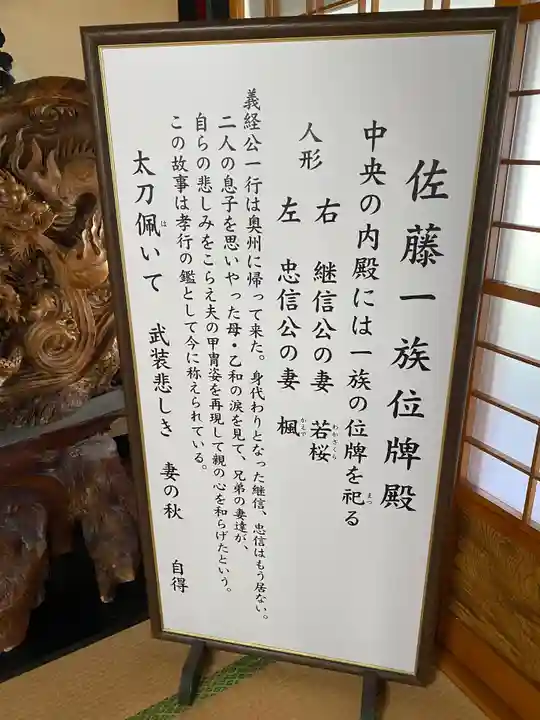 佐藤一族位牌殿
中央の内殿には一族の位牌を祀る
まつ
人形
右 継信公の妻 若桜
わかさくら
左 忠信公の妻 楓
かえで
義経公一行は奥州に帰って来た。身代わりとなった継信、忠信はもう居ない。
二人の息子を思いやった母・乙和の涙を見て、兄弟の妻達が、
自らの悲しみをこらえ夫の甲冑姿を再現して親の心を和らげたという。
この故事は孝行の鑑として今に称えられている。
太刀佩いて 武装悲しき 妻の秋 自得
は